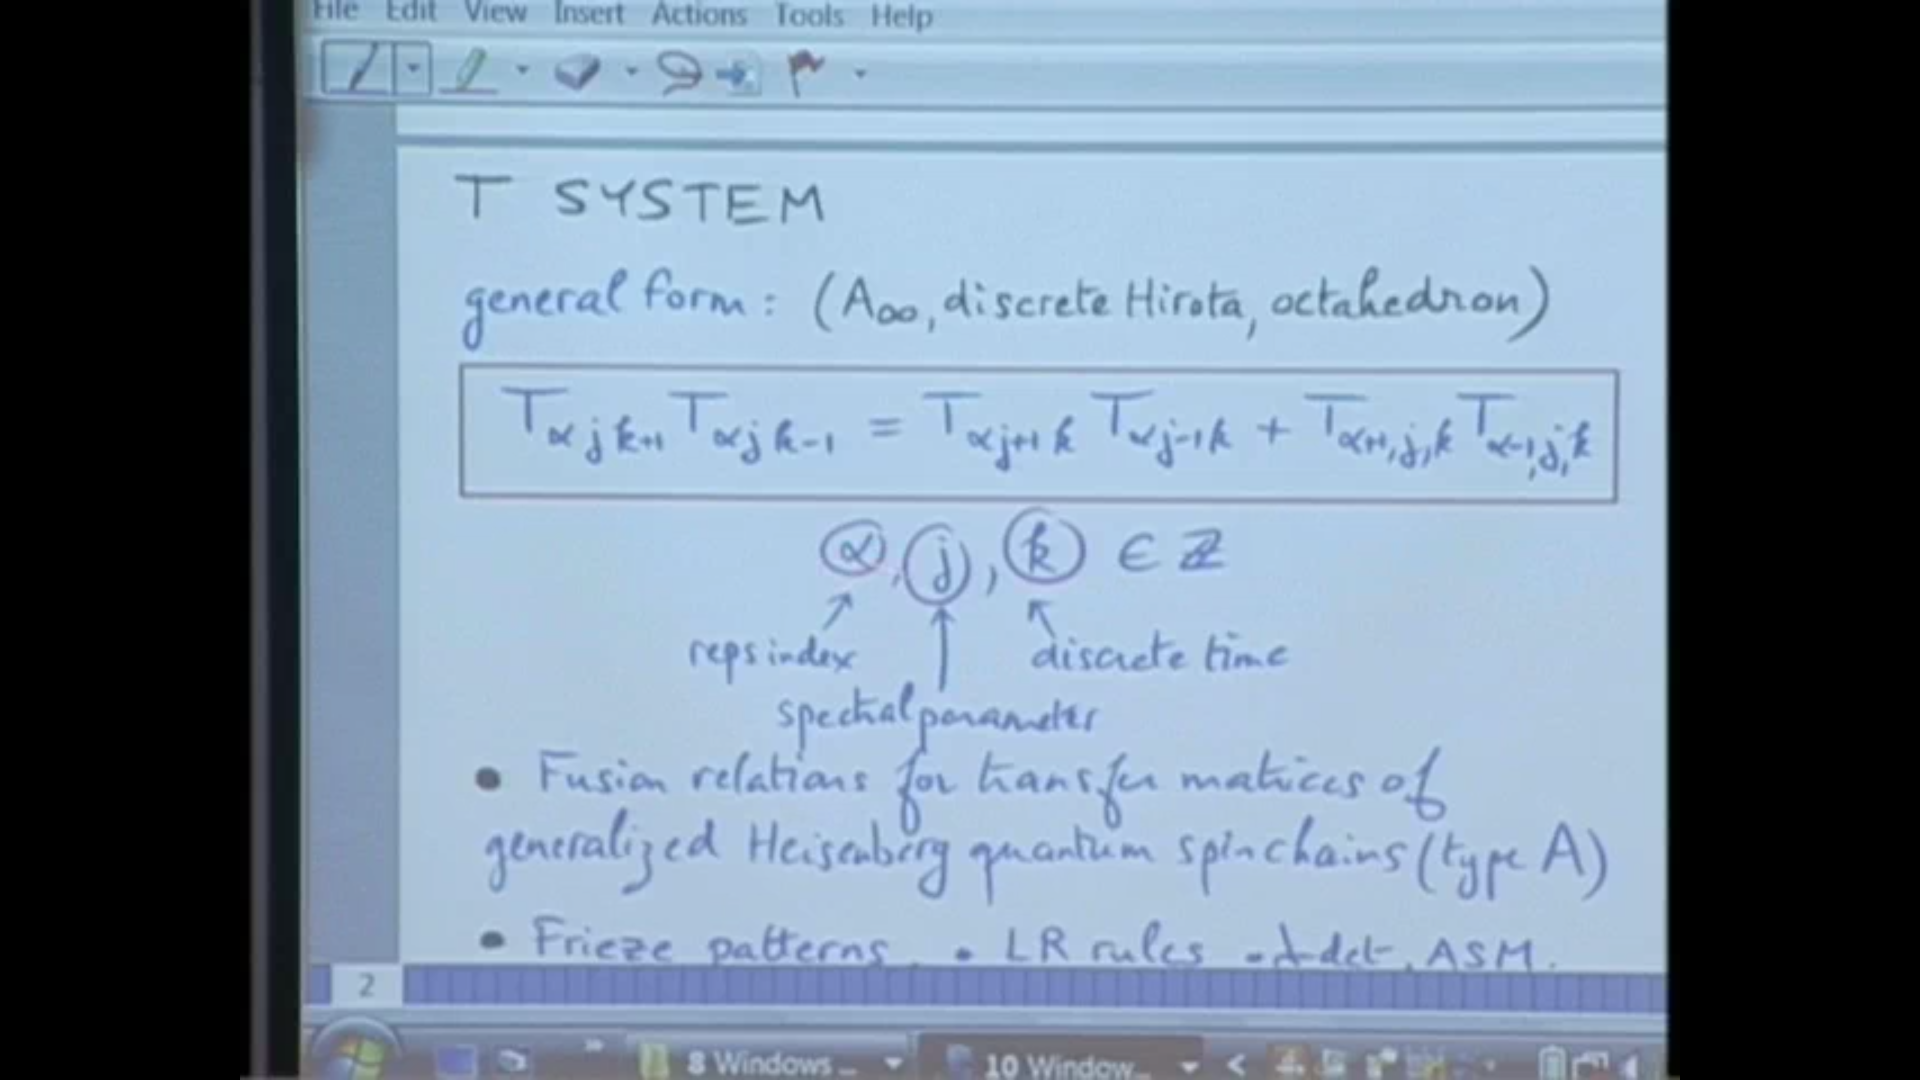 File Edit View Insert Actions Tools Help
T SYSTEM
general form: (A∞, discrete Hirota, octahedron)
T_{α j k+1} T_{α j k-1} = T_{α j+1 k} T_{α j-1 k} + T_{α+1, j, k} T_{α-1, j, k}
α, j, k ∈ ℤ
reps index discrete time
spectral parameter
• Fusion relations for transfer matrices of
generalized Heisenberg quantum spin chains (type A)
• Frieze patterns. • LR rules • λ-det, ASM.
2
8 Windows ... 10 Window...